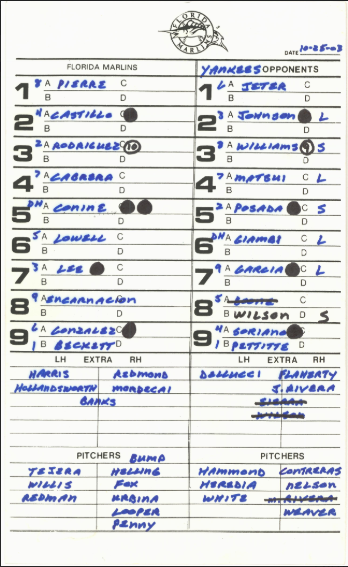 FLORIDA MARLINS
DATE 10-25-03
FLORIDA MARLINS YANKEES OPPONENTS
1 8 A PIERRE C
B D
1 6 A JETER C
B D
2 4 A CASTILLO
B D
2 3 A JOHNSON L
B D
3 2 A RODRIGUEZ 10
B D
3 8 A WILLIAMS 9 S
B D
4 7 A CABRERA C
B D
4 7 A MATSUI C L
B D
5 DH A CONINE
B D
5 2 A POSADA S
B D
6 5 A LOWELL C
B D
6 DH A GIAMBI C L
B D
7 3 A LEE C
B D
7 9 A GARCIA L
B D
8 9 A ENCARNACION
B D
8 5 A BOONE C
B WILSON D S
9 6 A GONZALEZ
1 B BECKETT D
9 4 A SORIANO
1 B PETTITTE D
LH EXTRA RH
HARRIS REDMOND
HOLLANDSWORTH MORDECAI
BANKS
LH EXTRA RH
DELLUCCI FLAHERTY
J. RIVERA
SIERRA
WILSON
PITCHERS BUMP
TEJERA HELLING
WILLIS FOX
REDMAN URBINA
LOOPER
PENNY
PITCHERS
HAMMOND CONTRERAS
HEREDIA NELSON
WHITE M. RIVERA
WEAVER